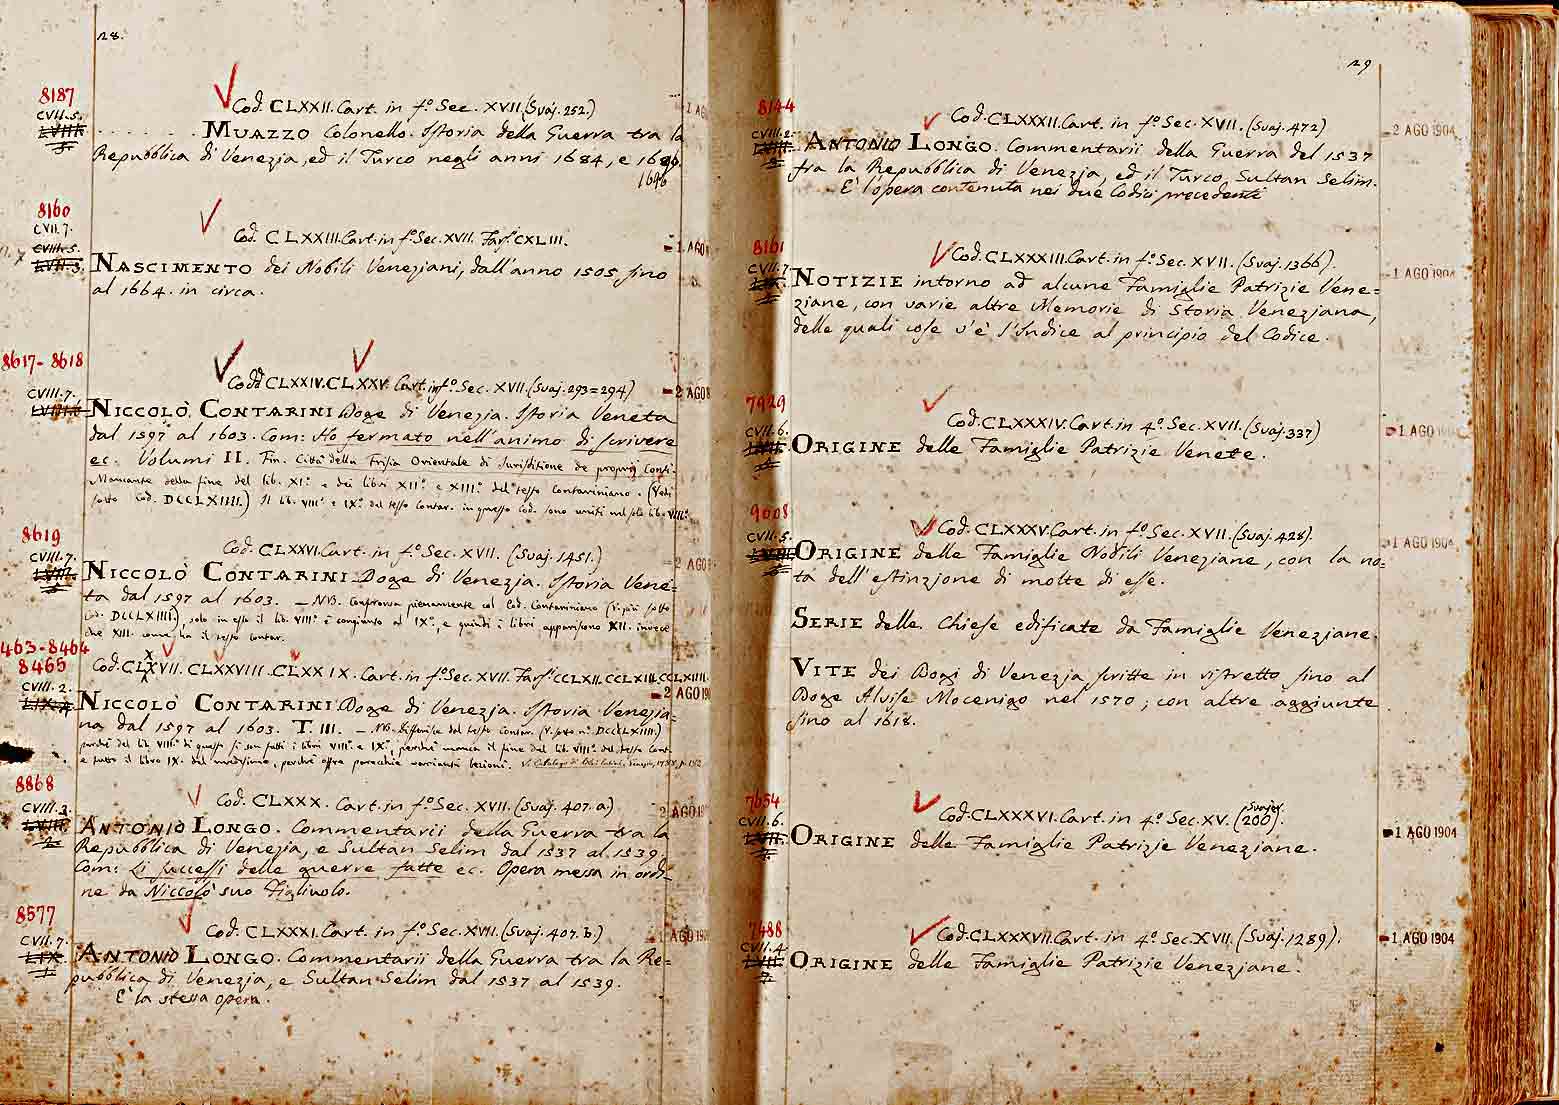 28.
8187
CVII.5.
Cod. CLXXII. Cart. in fº. Sec. XVII. (Svaj. 252.)
1 AG
. . . . . . . MUAZZO Colonello. Istoria della Guerra tra la
Repubblica di Venezia, ed il Turco negli anni 1684, e
1696
8160
CVII.7.
CVIII.5.
LVII.3.
Cod. CLXXIII. Cart. in fº. Sec. XVII. Farſ. CXLIII.
1 AGO
NASCIMENTO dei Nobili Veneziani, dall'anno 1505 sino
al 1664. in circa.
8617-8618
CVIII.7.
Codd. CLXXIV. CLXXV. Cart. in fº. Sec. XVII. (Svaj. 293=294)
2 AGO
NICCOLÒ CONTARINI Doge di Venezia. Istoria Veneta
dal 1597 al 1603. Com: Ho fermato nell'animo di scrivere
ec. Volumi II. Fin. Città della Frisia Orientale di Juriſditione de proprij Conti.
Mancante della fine del lib. XIº. e dei libri XIIº. e XIIIº. del testo Contariniano. (Vedi
sotto Cod. DCCLXIIII.) Il lib. VIIIº. e IXº. del testo Contar. in questo Cod. sono uniti nel solo lib. VIIIº.
8619
CVIII.7.
Cod. CLXXVI. Cart. in fº. Sec. XVII. (Svaj. 1451.)
2 AGO
NICCOLÒ CONTARINI Doge di Venezia. Istoria Vene=
ta dal 1597 al 1603. — NB. Conforma pienamente col Cod. Contariniano (V. più sotto
Cod. DCCLXIIII), solo in esso il lib. VIIIº. è congiunto al IXº., e quindi i libri appariscono XII. invece
che XIII. come ha il testo Contar.
8463-8464
8465
CVIII.2.
Cod. CLXXVII. CLXXVIII. CLXXIX. Cart. in fº. Sec. XVII. Farſ. CCLXII. CCLXIII. CCLXIIII.
2 AGO 190
NICCOLÒ CONTARINI Doge di Venezia. Istoria Venezia=
na dal 1597 al 1603. T. III. — NB. Differisce dal testo Contar. (V. sotto nº. DCCLXIIII.)
perchè del lib. VIIIº. di questo si son fatti i libri VIIIº. e IXº., perchè manca il fine del lib. VIIIº. del testo Cont.
e tutto il libro IX. del medesimo, perchè offre parecchie varianti lezioni.
8868
CVIII.3.
Cod. CLXXX. Cart. in fº. Sec. XVII. (Svaj. 407. a.)
2 AGO 19
ANTONIO LONGO. Commentarii della Guerra tra la
Repubblica di Venezia, e Sultan Selim dal 1537 al 1539.
Com: Li successi delle guerre fatte ec. Opera messa in ordi-
ne da Niccolò suo Figliuolo.
8577
CVII.7.
Cod. CLXXXI. Cart. in fº. Sec. XVII. (Svaj. 407. b.)
1 AGO 190
ANTONIO LONGO. Commentarii della Guerra tra la Re=
pubblica di Venezia, e Sultan Selim dal 1537 al 1539.
E' la stessa opera.
29
8144
CVIII.2.
Cod. CLXXXII. Cart. in fº. Sec. XVII. (Svaj. 472)
2 AGO 1904
ANTONIO LONGO. Commentarii della Guerra del 1537
fra la Repubblica di Venezia, ed il Turco Sultan Selim.
E' l'opera contenuta nei due Codici precedenti
8161
CVII.7
Cod. CLXXXIII. Cart. in fº. Sec. XVII. (Svaj. 1366).
1 AGO 1904
NOTIZIE intorno ad alcune Famiglie Patrizie Vene=
ziane, con varie altre Memorie di Storia Veneziana,
delle quali cose v'è l'Indice al principio del Codice.
7929
CVII.6.
Cod. CLXXXIV. Cart. in 4º. Sec. XVII. (Svaj. 337)
1 AGO 1904
ORIGINE delle Famiglie Patrizie Venete.
9608
CVII.5.
Cod. CLXXXV. Cart. in fº. Sec. XVII. (Svaj. 428).
1 AGO 1904
ORIGINE delle Famiglie Nobili Veneziane, con la no=
ta dell'estinzione di molte di esse.
SERIE delle Chiese edificate da Famiglie Veneziane.
VITE dei Dogi di Venezia scritte in ristretto sino al
Doge Alvise Mocenigo nel 1570; con altre aggiunte
sino al 1618.
7654
CVII.6.
Cod. CLXXXVI. Cart. in 4º. Sec. XV. (Svajer. 200).
1 AGO 1904
ORIGINE delle Famiglie Patrizie Veneziane.
7488
CVII.4.
Cod. CLXXXVII. Cart. in 4º. Sec. XVII. (Svaj. 1289).
1 AGO 1904
ORIGINE delle Famiglie Patrizie Veneziane.